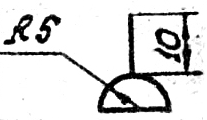 R5
10